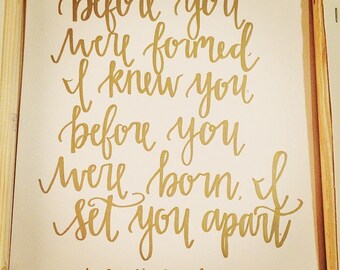 before you
were formed
I knew you
before you
were born, I
set you apart